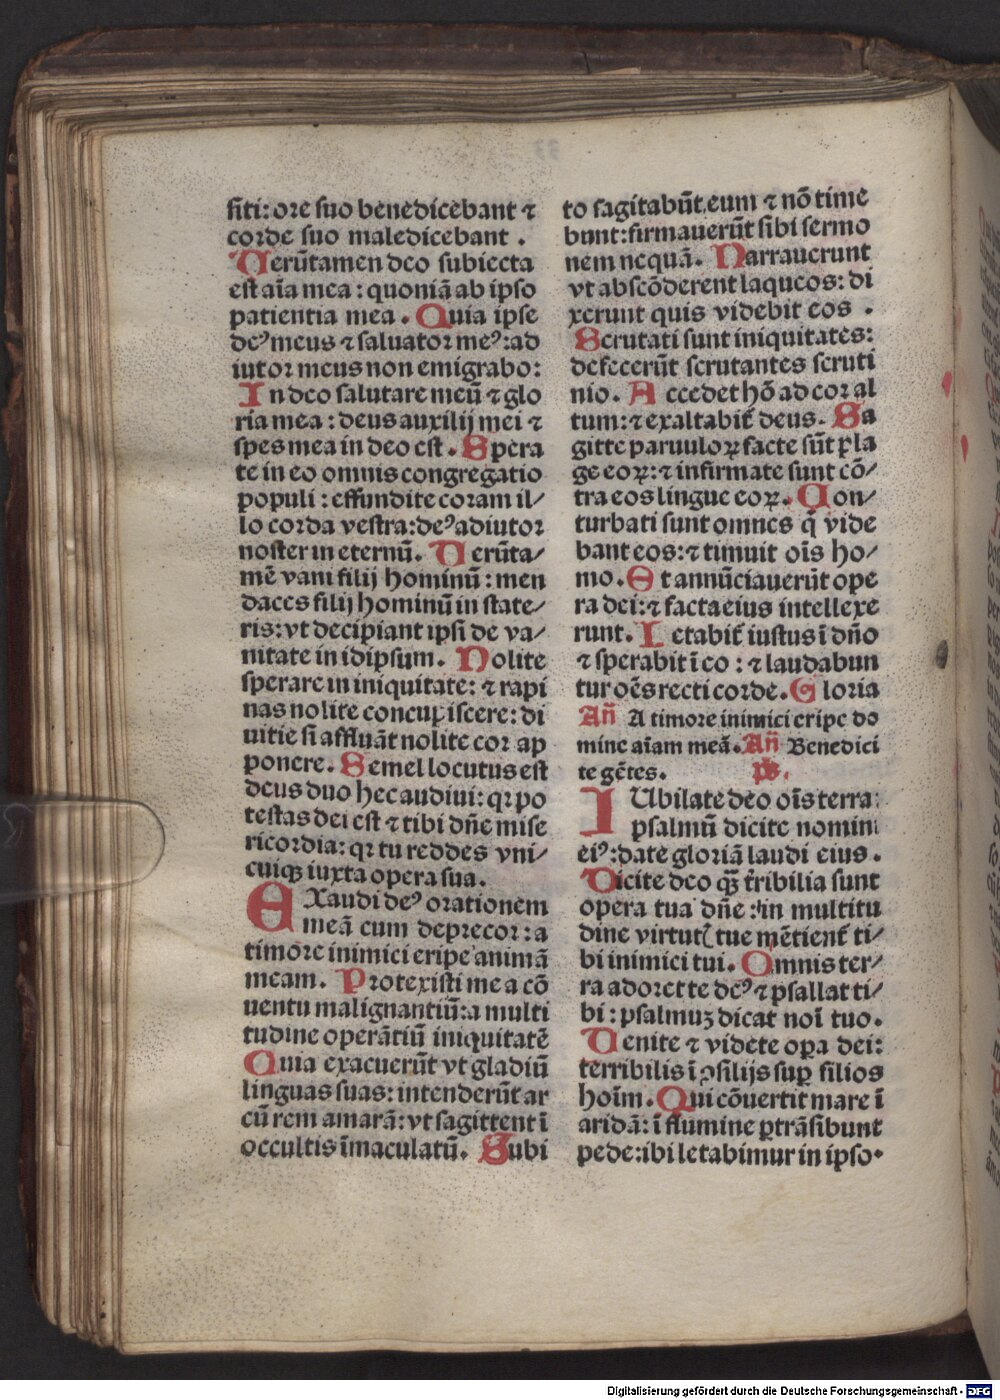 siti: ore suo benedicebant ⁊
corde suo maledicebant .
Uerūtamen deo subiecta
est aīa mea : quoniā ab ipso
patientia mea . Quia ipse
deꝰ meus ⁊ saluator meꝰ: ad
iutor meus non emigrabo:
In deo salutare meū ⁊ glo
ria mea : deus auxilij mei ⁊
spes mea in deo est . Spera
te in eo omnis congregatio
populi : effundite coram il/
lo corda vestra: deꝰ adiutor
noster in eternū. Uerūta/
mē vani filij hominū : men
daces filij hominū in state/
ris: vt decipiant ipsi de va/
nitate in idipsum. Nolite
sperare in iniquitate: ⁊ rapi
nas nolite concupiscere: di
uitie si affluāt nolite cor ap
ponere. Semel locutus est
deus duo hec audiui: qꝛ po
testas dei est ⁊ tibi dñe mise
ricordia: qꝛ tu reddes vni/
cuiqꝫ iuxta opera sua.
EXaudi deꝰ orationem
meā cum deprecor : a
timore inimici eripe animā
meam. Protexisti me a cō
uentu malignantiū: a multi
tudine operātiū iniquitatē
Quia exacuerūt vt gladiū
linguas suas: intenderūt ar
cū rem amarā: vt sagittent ī
occultis īmaculatū. Subi
to sagitabūt eum ⁊ nō time
bunt: firmauerūt sibi sermo
nem nequā. Narrauerunt
vt abscōderent laqueos: di
xerunt quis videbit eos .
Scrutati sunt iniquitates:
defecerūt scrutantes scruti
nio. Accedet hō ad cor al
tum: ⁊ exaltabit̄ deus. Sa
gitte paruuloꝝ facte sūt pla
ge eoꝝ: ⁊ infirmate sunt cō/
tra eos lingue eoꝝ. Con/
turbati sunt omnes q̄ vide
bant eos: ⁊ timuit oīs ho/
mo. Et annūciauerūt ope
ra dei: ⁊ facta eius intellexe
runt. Letabit̄ iustus ī dño
⁊ sperabit ī eo : ⁊ laudabun
tur oēs recti corde. Gloria
Añ A timore inimici eripe do
mine aīam meā. Añ Benedici
te gētes. ps.
IUbilate deo oīs terra:
psalmū dicite nomini
eiꝰ: date gloriā laudi eius.
Dicite deo qꝫ̄ t̄ribilia sunt
opera tua dñe : in multitu
dine virtutꝭ tue mētient̄ ti/
bi inimici tui. Omnis ter/
ra adoret te deꝰ ⁊ psallat ti/
bi : psalmuꝫ dicat noī tuo.
Uenite ⁊ videte oꝑa dei:
terribilis ī ꝯsilijs suꝑ filios
hoīm. Qui cōuertit mare ī
aridā: ī flumine ꝑtrāsibunt
pede: ibi letabimur in ipso.
Digitalisierung gefördert durch die Deutsche Forschungsgemeinschaft - DFG